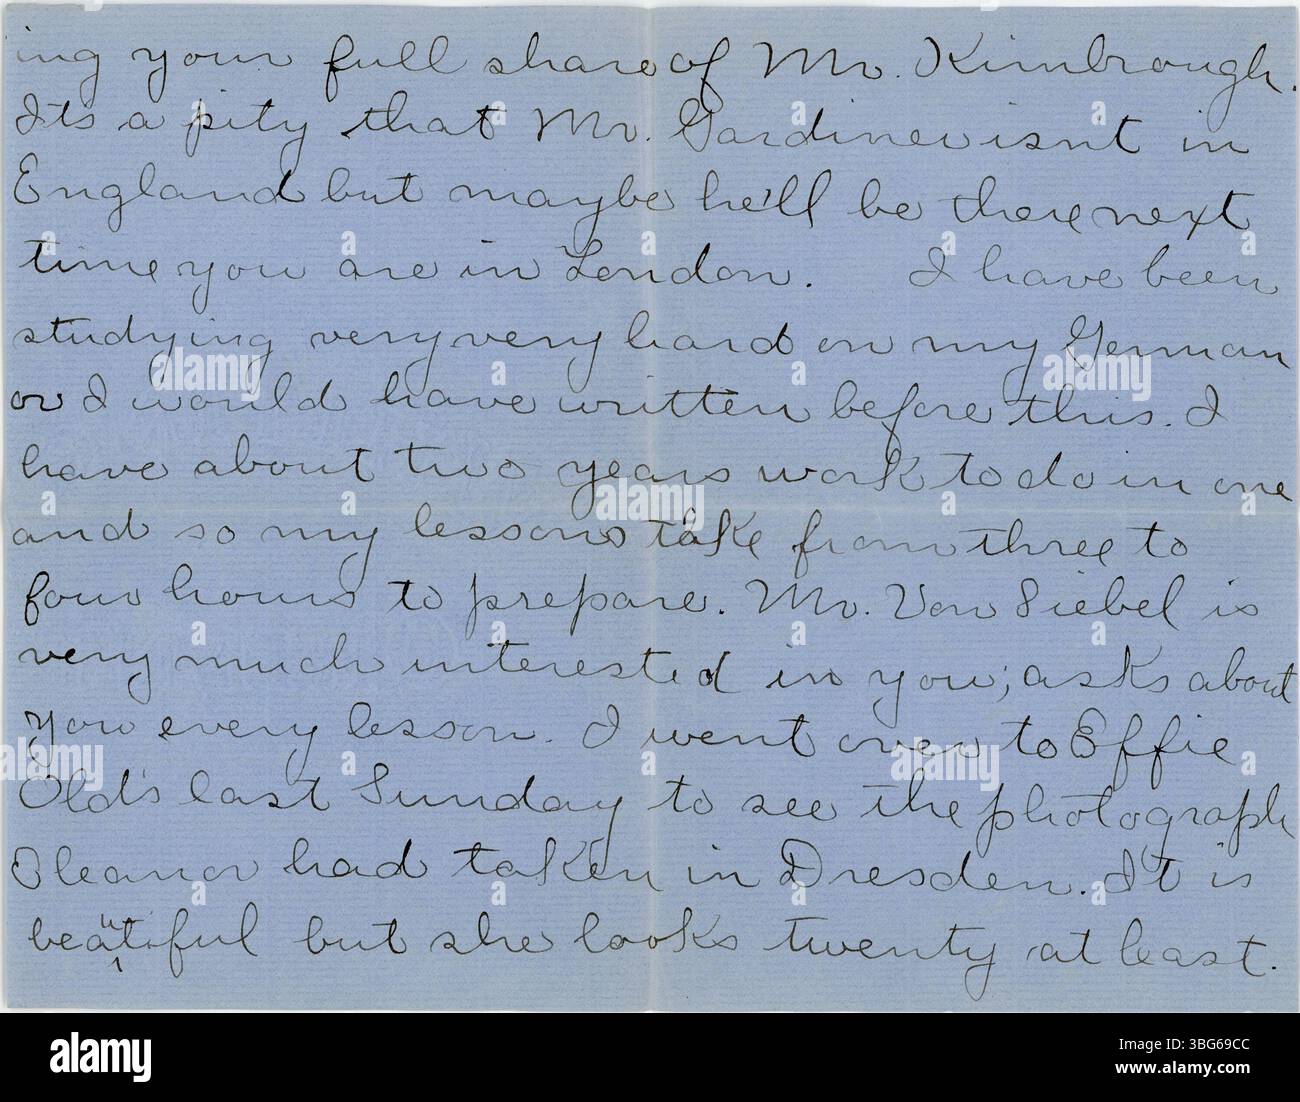 ing your full share of Mr. Kimbrough.
Its a pity that Mr. Gardiner isnt in
England but maybe he'll be there next
time you are in London. I have been
studying very very hard on my German
or I would have written before this. I
have about two years work to do in one
and so my lessons take from three to
four hours to prepare. Mr. Von Siebel is
very much interested in you; asks about
you every lesson. I went over to Effie
Old's last Sunday to see the photograph
Eleanor had taken in Dresden. It is
beautiful but she looks twenty at least.
alamy
Image ID: 3BG69CC
www.alamy.com